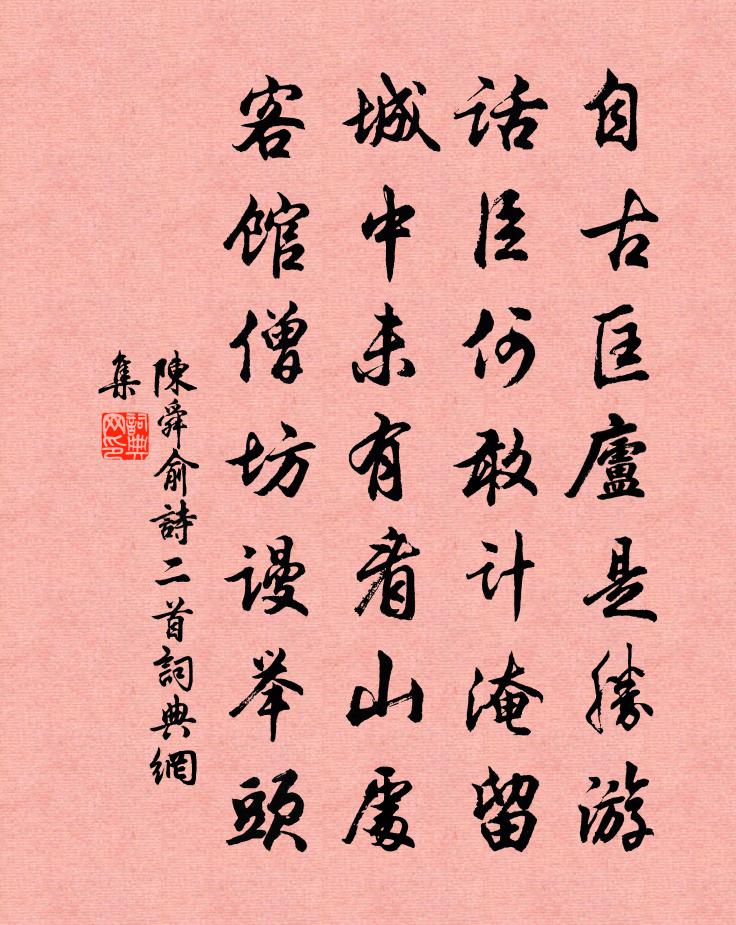 自古匡廬是勝游
話臣何敢計淹留
城中未有看山處
客館僧坊謾举頭
陳舜俞詩二首詞典網
集
詞典
网印